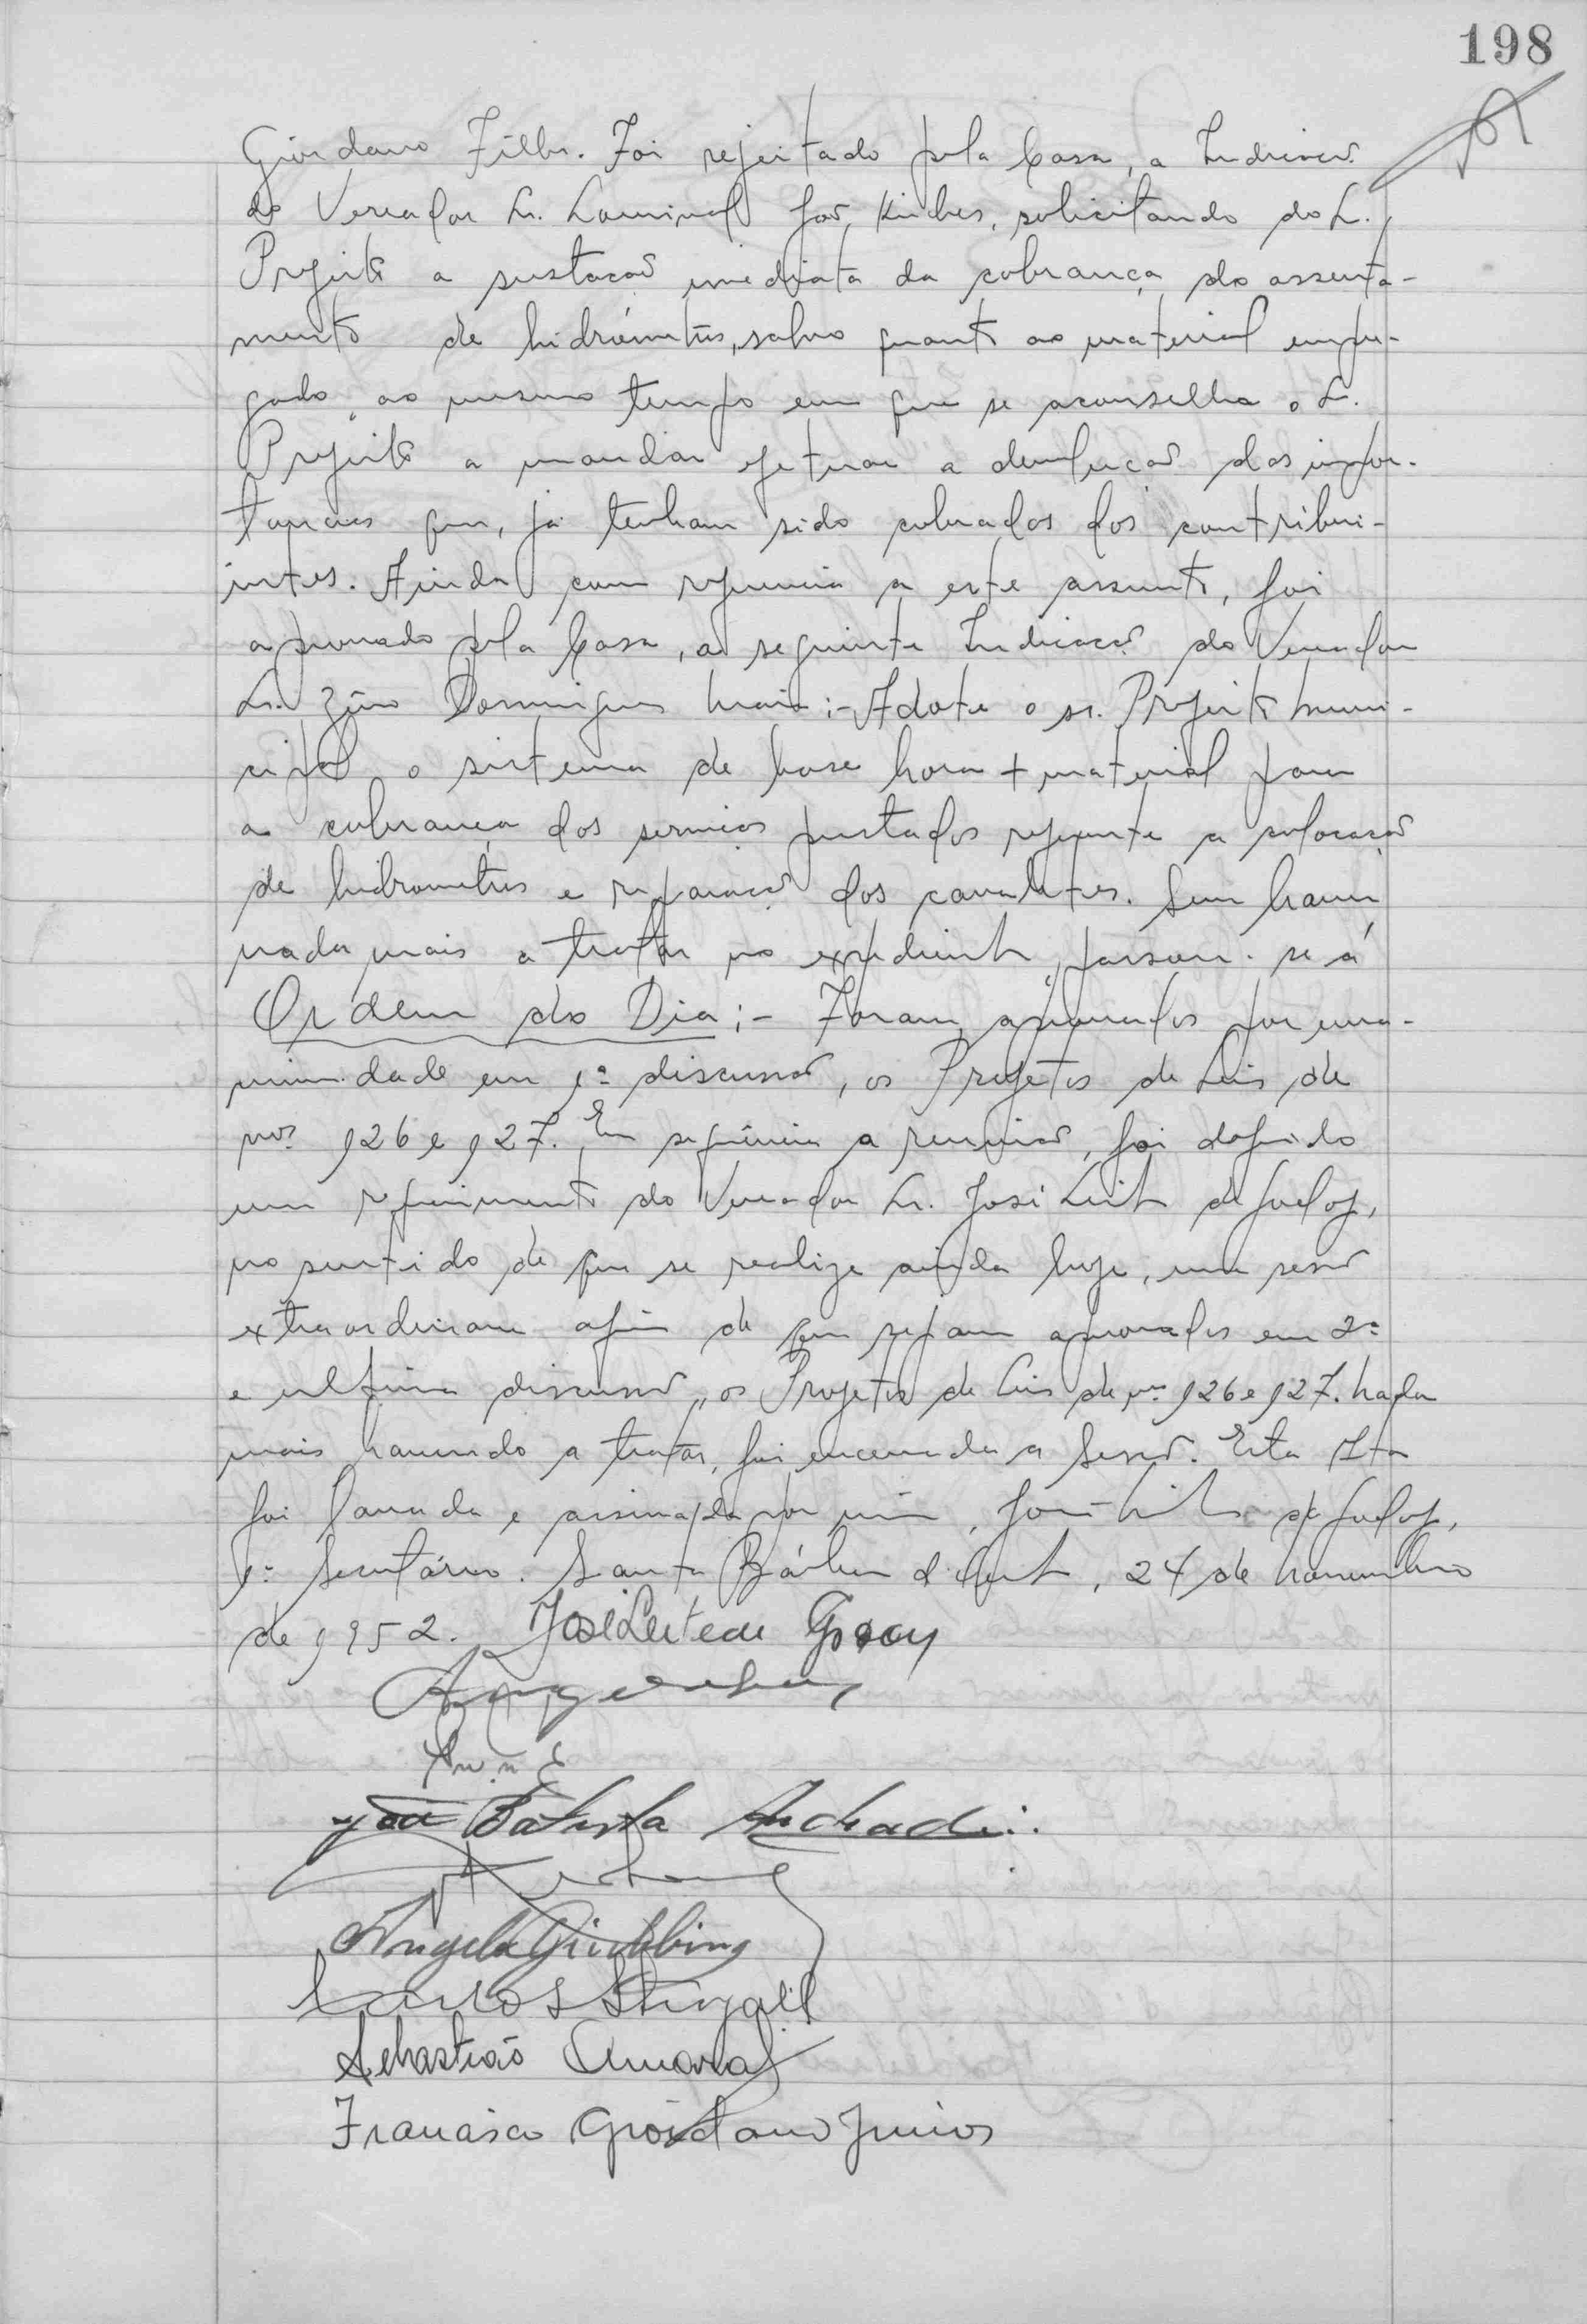 198
Giordano Filho. Foi rejeitado pela Casa, a Indicação
do Vereador Sr. Lourival, solicitando do Sr.
Prefeito a sustação imediata da cobrança do assenta-
mento de hidrómetros, salvo quanto ao material empre-
gado, ao mesmo tempo em que se aconselha o Sr.
Prefeito a mandar efetuar a devolução das impor-
tancias que, já tenham sido cobrados dos contribui-
intes. Ainda com referencia a este assunto, foi
aprovado pela Casa, a seguinte Indicação do Vereador
Sr. Domingues Maia:- Adote o sr. Prefeito Muni-
cipal o sistema de base hora + material para
a cobrança dos serviços prestados referente a colocação
de hidrometros e reparação dos cavaletes. Sem haver
nada mais a tratar no expediente, passou-se á
Ordem do Dia:- Foram aprovados por una-
nimidade em 1ª discussão, os Projetos de Leis de
nos 126 e 127. Em sequência a reunião, foi
um requerimento do Vereador Sr. José Leite de Godoy,
no sentido de que se realize ainda hoje, uma sessão
extraordinaria afim de que sejam aprovados em 2ª
e ultima discussão, os Projetos de Leis de nos 126 e 127. Nada
mais havendo a tratar, foi encerrada a Sessão. Esta Ata
foi lavrada e assinada por mim, José Leite de Godoy,
1º Secretário. Santa Bárbara d'Oeste, 24 de Novembro
de 1952. José Leite de Godoy
João Batista Andrade
Angelo Giubbina
Carlos Steagall
Sebastião Amaral
Francisco Giordano Junior